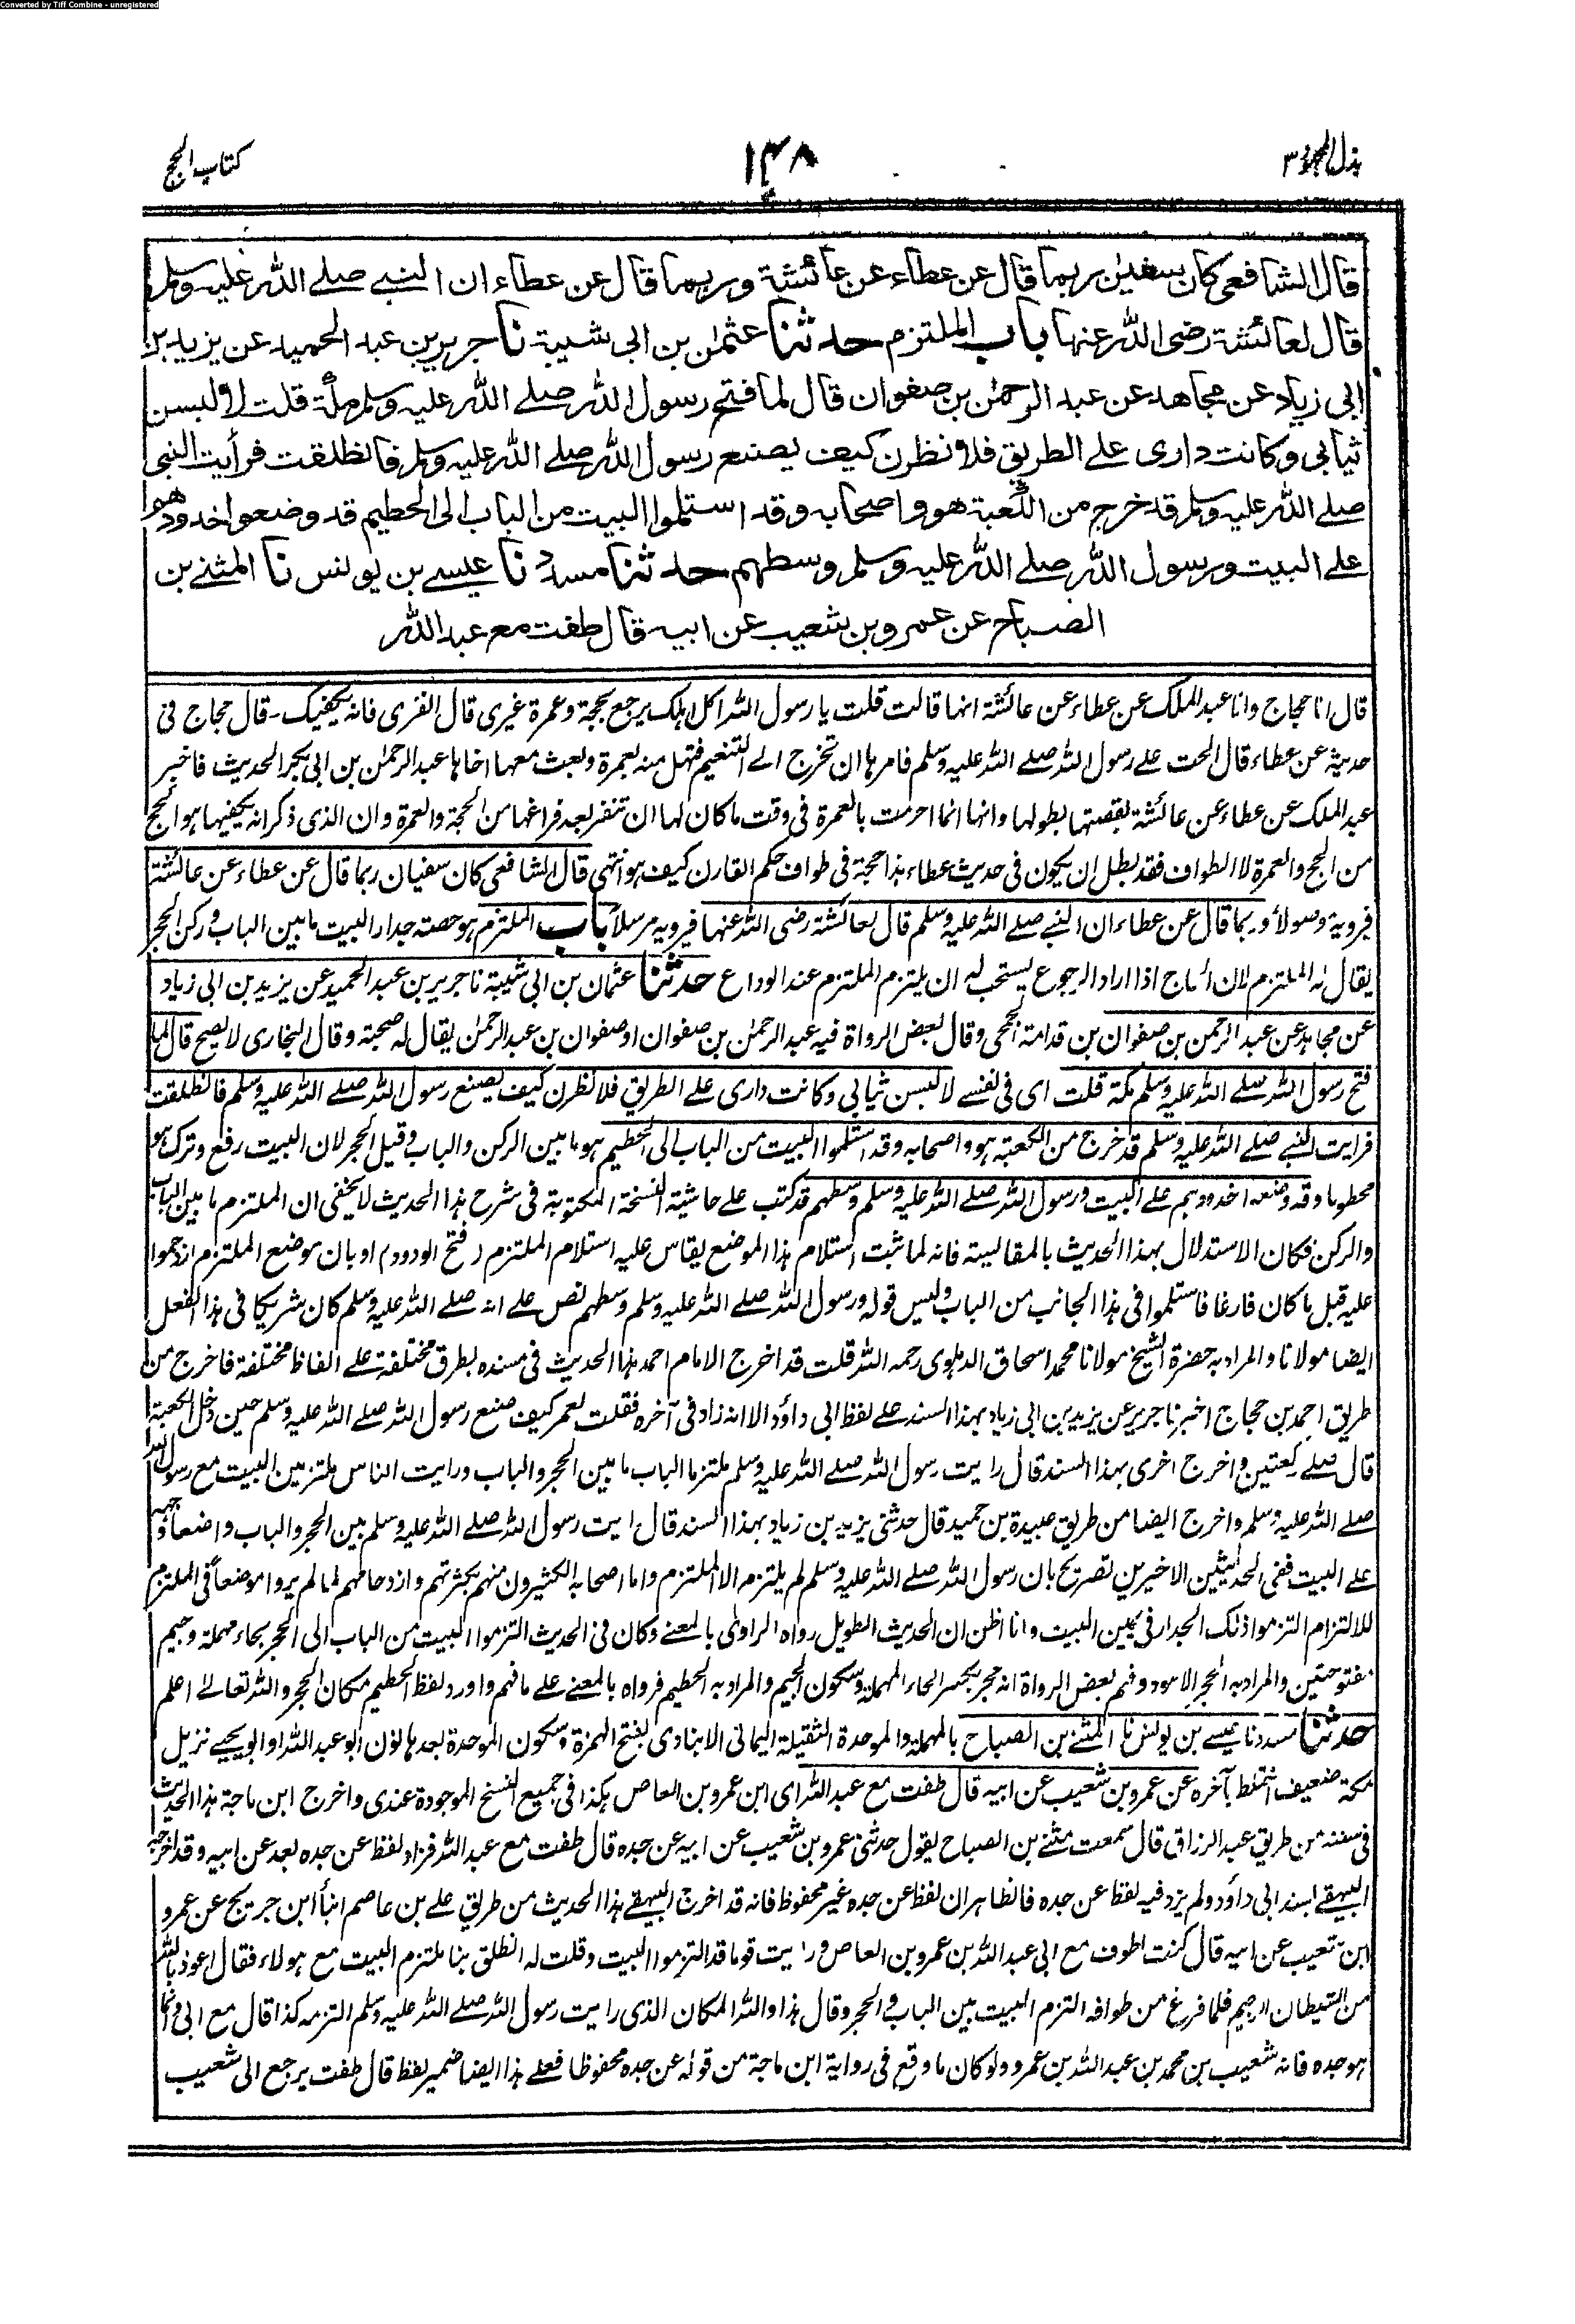 Converted by Tiff Combine - unregistered
بذل المجهود ٣
١٤٨
كتاب الحج
قال الشافعى كان سفين ربما قال عن عطاء عن عائشة وربما قال عن عطاء ان النبى صلى الله عليه وسلم
قال لعائشة رضى الله عنها باب الملتزم حدثنا عثمن بن ابى شيبة نا جرير بن عبد الحميد عن يزيد بن
ابى زياد عن مجاهد عن عبد الرحمن بن صفوان قال لما فتح رسول الله صلى الله عليه وسلم مكة قلت لالبسن
ثيابى وكانت دارى على الطريق فلانظرن كيف يصنع رسول الله صلى الله عليه وسلم فانطلقت فرأيت النبى
صلى الله عليه وسلم قد خرج من الكعبة هو واصحابه وقد استلموا البيت من الباب الى الحطيم قد وضعوا خدودهم
على البيت ورسول الله صلى الله عليه وسلم وسطهم حدثنا مسدد نا عيسى بن يونس نا المثنى بن
الصباح عن عمرو بن شعيب عن ابيه قال طفت مع عبد الله
قال انا حجاج وانا عبد الملك عن عطاء عن عائشة انها قالت قلت يا رسول الله اكل اهلك يرجع بحجة وعمرة غيرى قال انفرى فانه يكفيك - قال حجاج فى
حديثه عن عطاء قال الحت على رسول الله صلى الله عليه وسلم فامرها ان تخرج الى التنعيم فتهل منه بعمرة وبعث معها اخاها عبد الرحمن بن ابى بكر الحديث فاخبر
عبد الملك عن عطاء عن عائشة بقصتها بطولها وانها انما احرمت بالعمرة فى وقت ما كان لها ان تنفر بعد فراغها من الحجة والعمرة وان الذى ذكر انه يكفيها هو الحج
من الحج والعمرة لا الطواف فقد بطل ان يكون فى حديث عطاء هذا حجة فى طواف حكم القارن كيف هو انتهى قال الشافعى كان سفيان ربما قال عن عطاء عن عائشة
فيرويه موصولا وربما قال عن عطاء ان النبى صلى الله عليه وسلم قال لعائشة رضى الله عنها فيرويه مرسلا باب الملتزم هو حصته جدار البيت ما بين الباب وركن الحجر
يقال له الملتزم لان الحاج اذا اراد الرجوع يستحب له ان يلتزم الملتزم عند الوداع حدثنا عثمان بن ابى شيبة نا جرير بن عبد الحميد عن يزيد بن ابى زياد
عن مجاهد عن عبد الرحمن بن صفوان بن قدامة الجمحى وقال بعض الرواة فيه عبد الرحمن بن صفوان او صفوان بن عبد الرحمن يقال له صحبة وقال البخارى لا يصح قال لما
فتح رسول الله صلى الله عليه وسلم مكة قلت اى فى نفسى لالبسن ثيابى وكانت دارى على الطريق فلانظرن كيف يصنع رسول الله صلى الله عليه وسلم فانطلقت
فرايت النبى صلى الله عليه وسلم قد خرج من الكعبة هو واصحابه وقد استلموا البيت من الباب الى الحطيم هو ما بين الركن والباب وقيل الحجر لان البيت رفع وترك هو
محطوما وقد وضعوا خدودهم على البيت ورسول الله صلى الله عليه وسلم وسطهم قد كتب على حاشية النسخة المكتوبة فى شرح هذا الحديث لا يخفى ان الملتزم ما بين الباب
والركن فكان الاستدلال بهذا الحديث بالمقايسة فانه لما ثبت استلام هذا الموضع يقاس عليه استلام الملتزم (فتح الودود) او بان موضع الملتزم ازدحموا
عليه قبل ما كان فارغا فاستلموا فى هذا الجانب من الباب وليس قوله ورسول الله صلى الله عليه وسلم وسطهم نص على انه صلى الله عليه وسلم كان شريكا فى هذا الفعل
ايضا مولانا والمراد به حضرة الشيخ مولانا محمد اسحاق الدهلوى رحمه الله قلت قد اخرج الامام احمد هذا الحديث فى مسنده بطرق مختلفة على الفاظ مختلفة فاخرج من
طريق احمد بن حجاج اخبرنا جرير عن يزيد بن ابى زياد بهذا السند على لفظ ابى داؤد الا انه زاد فى آخره فقلت لعمر كيف صنع رسول الله صلى الله عليه وسلم حين دخل الكعبة
قال صلى ركعتين واخرج اخرى بهذا السند قال رايت رسول الله صلى الله عليه وسلم ملتزما الباب ما بين الحجر والباب ورايت الناس ملتزمين البيت مع رسول الله
صلى الله عليه وسلم واخرج ايضا من طريق عبيدة بن حميد قال حدثنى يزيد بن زياد بهذا السند قال رايت رسول الله صلى الله عليه وسلم بين الحجر والباب واضعا وجهه
على البيت ففى الحديثين الاخيرين تصريح بان رسول الله صلى الله عليه وسلم لم يلتزم الا الملتزم واما اصحابه الكثيرون منهم بكثرتهم وازدحامهم لما لم يروا موضعا فى الملتزم
للالتزام التزموا ذلك الجدار فى يمين البيت وانا اظن ان الحديث الطويل رواه الراوى بالمعنى وكان فى الحديث التزموا البيت من الباب الى الحجر بحاء مهملة وجيم
مفتوحتين والمراد به الحجر الاسود وفهم بعض الرواة انه حجر بكسر الحاء المهملة وسكون الجيم والمراد به الحطيم فرواه بالمعنى على ما فهم واورد لفظ الحطيم مكان الحجر والله تعالى اعلم
حدثنا مسدد نا عيسى بن يونس نا المثنى بن الصباح بالمهملة والموحدة الثقيلة اليمانى الابناوى بفتح الهمزة وسكون الموحدة بعدها نون ابو عبد الله او ابو يحيى نزيل
مكة ضعيف اختلط بآخره عن عمرو بن شعيب عن ابيه قال طفت مع عبد الله اى ابن عمرو بن العاص هكذا فى جميع النسخ الموجودة عندى واخرج ابن ماجة هذا الحديث
فى سننه من طريق عبد الرزاق قال سمعت مثنى بن الصباح يقول حدثنى عمرو بن شعيب عن ابيه عن جده قال طفت مع عبد الله فزاد لفظ عن جده بعد عن ابيه وقد اخرجه
البيهقى بسند ابى داؤد ولم يزد فيه لفظ عن جده فالظاهر ان لفظ عن جده غير محفوظ فانه قد اخرج البيهقى هذا الحديث من طريق على بن عاصم انبأ ابن جريج عن عمرو
ابن شعيب عن ابيه قال كنت اطوف مع ابى عبد الله بن عمرو بن العاص ورايت قوما قد التزموا البيت وقلت له انطلق بنا ملتزم البيت مع هولاء فقال اعوذ بالله
من الشيطان الرجيم فلما فرغ من طوافه التزم البيت بين الباب والحجر وقال هذا والله المكان الذى رايت رسول الله صلى الله عليه وسلم التزمه كذا قال مع ابى وانما
هو جده فانه شعيب بن محمد بن عبد الله بن عمرو ولو كان ما وقع فى رواية ابن ماجة من قوله عن جده محفوظا فعلى هذا ايضا ضمير لفظ قال طفت يرجع الى شعيب